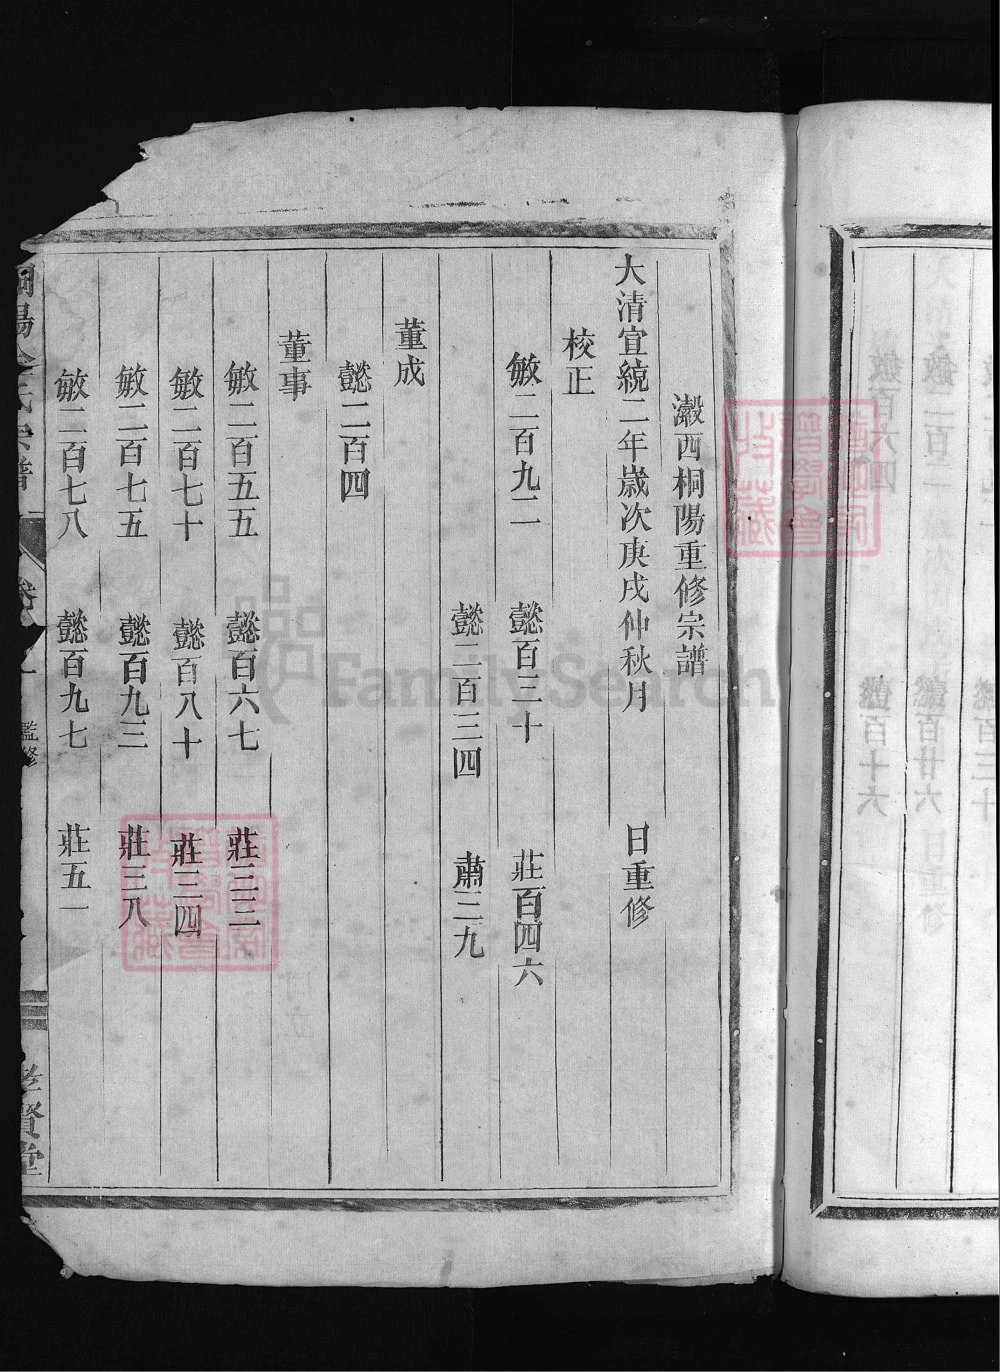 瀫西桐陽重修宗譜
大清宣統二年歲次庚戌仲秋月 日重修
校正
敏二百九二 懿百三十 莊百四六
懿二百三四 肅三九
董成
懿二百四
董事
敏二百五五 懿百六七 莊三三
敏二百七十 懿百八十 莊三四
敏二百七五 懿百九三 莊三八
敏二百七八 懿百九七 莊五一
桐陽金氏宗譜 卷之一 監修 賢堂
FamilySearch